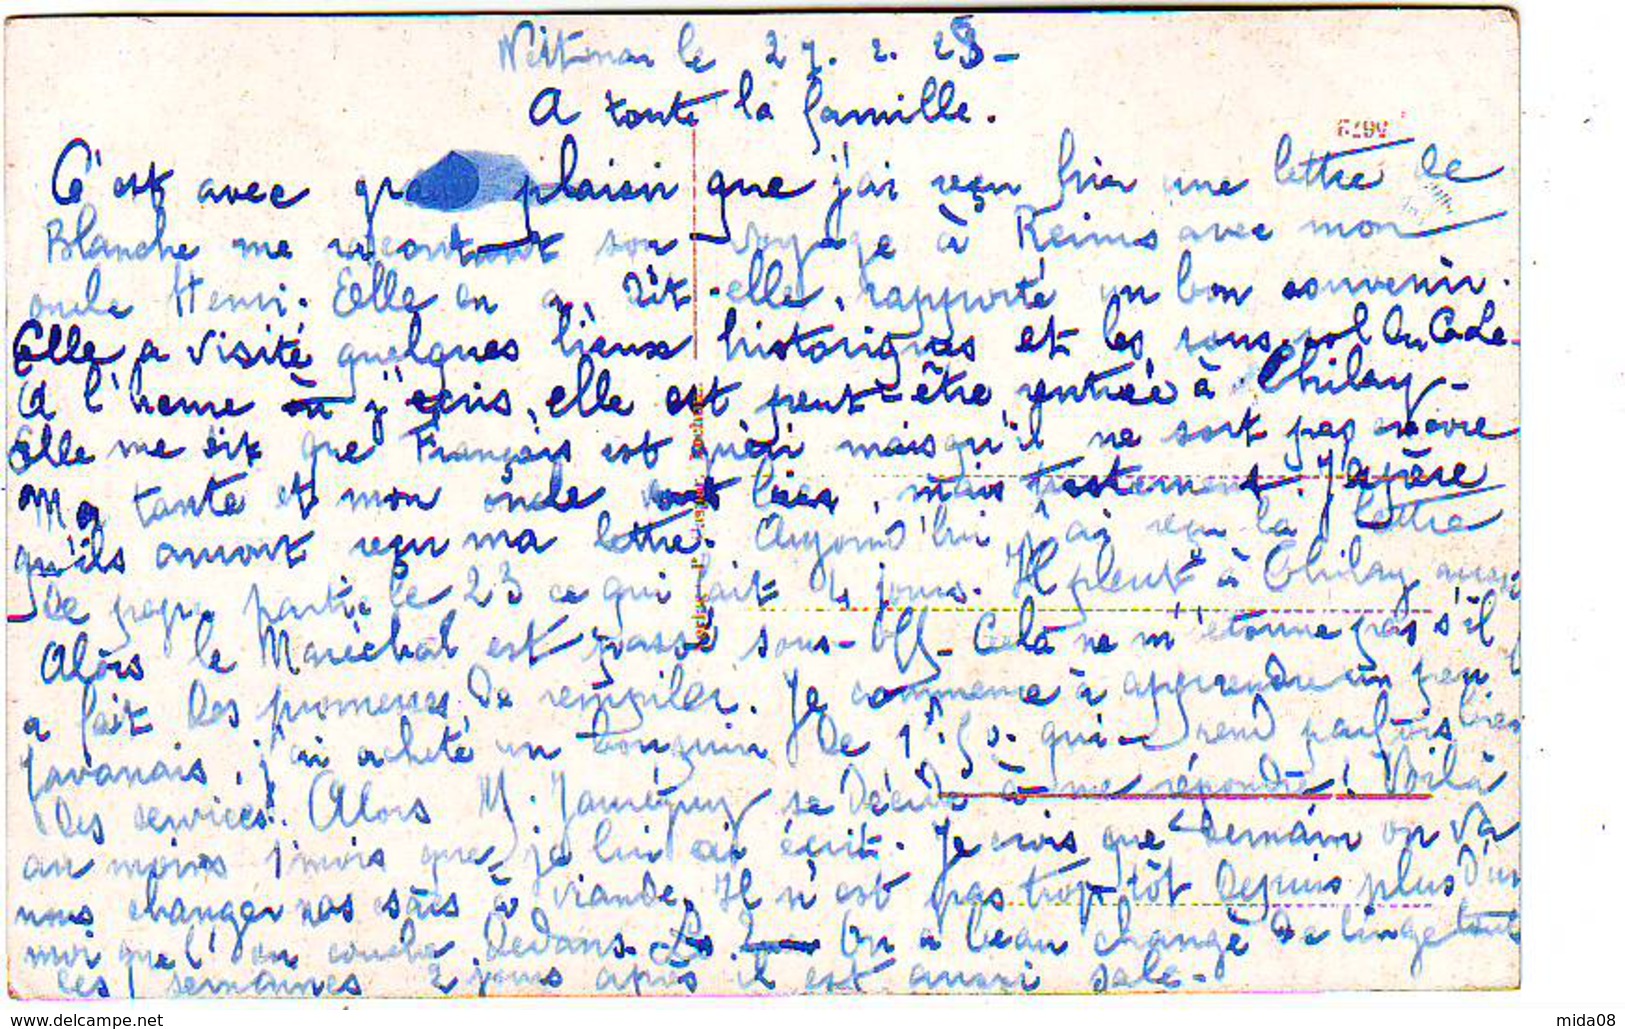 le 27. 2. 28 -
A toute la famille.
C'est avec grand plaisir que j'ai reçu hier une lettre de
Blanche me racontant son voyage à Reims avec mon
oncle Henri. Elle en a, dit-elle, rapporté un bon souvenir.
Elle a visité quelques lieux historiques et les sous-sol du
A l'heure où j'écris, elle est peut-être rentrée à Thilay -
Elle me dit que François est guéri mais qu'il ne sort pas encore
Ma tante et mon oncle vont bien, mais tristement. J'espère
qu'ils auront reçu ma lettre. Aujourd'hui j'ai reçu la lettre
de papa partie le 23 ce qui fait 4 jours. Il pleut à Thilay aussi
Alors le Maréchal est passé sous-off. Celà ne m'étonne pas s'il
a fait des promesses de rempiler. Je commence à apprendre un peu l
javanais, j'ai acheté un bouquin de 1f.50. qui rend parfois bien
des services! Alors M. se décide à me répondre! Voilà
au moins 1 mois que je lui ai écrit. Je crois que demain on va
nous changer nos sacs à viande. Il n'est pas trop tôt depuis plus d'un
moi que l'on couche dedans. On a beau changé de linge tout
les semaines 2 jours après il est aussi sale -
www.delcampe.net
mida08